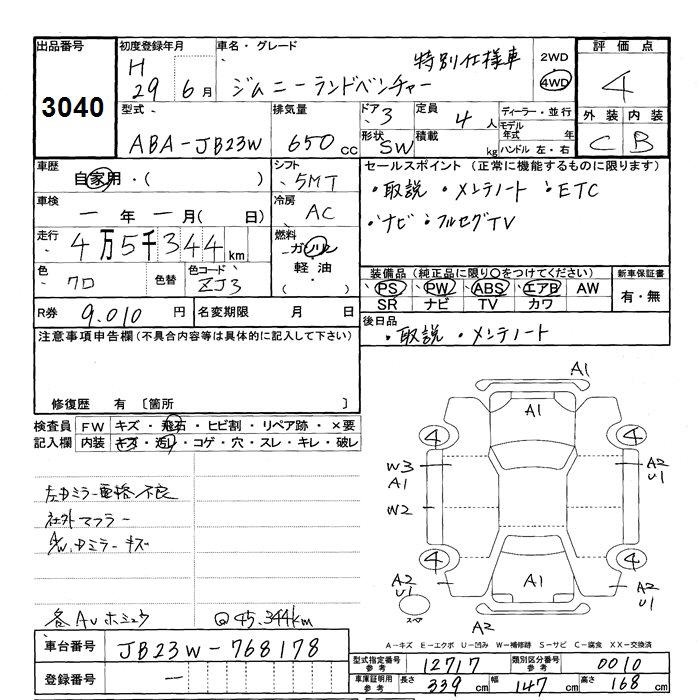 出品番号
3040
初度登録年月
H 29 6月
車名・グレード
ジムニーランドベンチャー
特別仕様車
2WD
4WD
評価点
4
外装 内装
C B
型式
ABA-JB23W
排気量
650 cc
ドア 3
形状 SW
定員 4 人
積載 kg
ディーラー・並行
モデル年式 年
ハンドル 左・右
車歴
自家用・( )
シフト
5MT
車検
一 年 一 月( 日)
冷房
AC
走行
4万5千344 km
燃料
ガソリン
軽油
( )
色
クロ
色替
色コード
ZJ3
R券 9.010 円
名変期限 月 日
セールスポイント (正常に機能するものに限ります)
・取説 ・メンテノート ・ETC
・ナビ・フルセグTV
装備品(純正品に限り○をつけてください)
PS PW ABS エアB AW
SR ナビ TV カワ
新車保証書
有・無
後日品
・取説 ・メンテノート
注意事項申告欄(不具合内容等は具体的に記入して下さい)
修復歴 有 〔箇所 〕
検査員記入欄
FW キズ・飛石・ヒビ割・リペア跡・×要
内装 キズ・汚レ・コゲ・穴・スレ・キレ・破レ
左ドミラー電格不良
社外マフラー
A/W.ドミラーキズ
各AUホシュウ
@45.344km
A1
A1
4
4
W3
A1
A2
U1
W2
4
4
A1
A2
U1
A2
U1
スペア
A2
A-キズ E-エクボ U-凹み W-補修跡 S-サビ C-腐食 XX-交換済
車台番号
JB23W-768178
登録番号
一
型式指定番号 参考 12717
類別区分番号 参考 0010
車庫証明用 参考 長さ 339 cm 幅 147 cm 高さ 168 cm